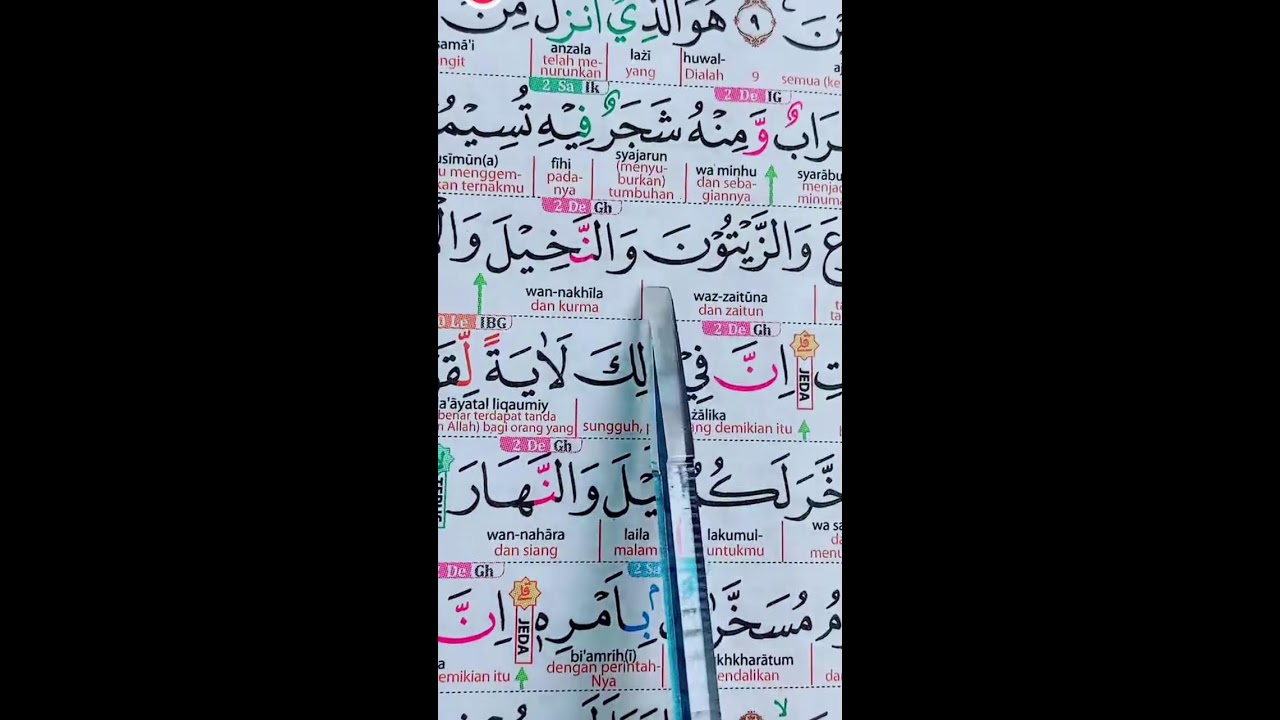 هُوَ الَّذِيْٓ اَنْزَلَ مِنَ ٩
samā'i anzala lażī huwal-
ngit telah me-nurunkan yang Dialah 9 semua (ke
2 Sa Ik 2 De IG
شَرَابٌ وَّمِنْهُ شَجَرٌ فِيْهِ تُسِيْمُ
usīmūn(a) fīhi syajarun wa minhu syarābu
u menggem-kan ternakmu pada-nya (menyu-burkan) tumbuhan dan seba-giannya menja minuma
2 De Gh
عَ وَالزَّيْتُوْنَ وَالنَّخِيْلَ وَالْ
wan-nakhīla waz-zaitūna
dan kurma dan zaitun
IBG 2 De Gh
تِ JEDA اِنَّ فِيْ لِكَ لَاٰيَةً لِّقَ
a'āyatal liqaumiy żālika
benar terdapat tanda n Allah) bagi orang yang sungguh, ng demikian itu
2 De Gh
خَّرَ لَكُمُ يْلَ وَالنَّهَارَ
wan-nahāra laila lakumul- wa sa
dan siang malam untukmu da menu
De Gh 2 Sa
مُ مُسَخَّرٰ بِاَمْرِهٖ JEDA اِنَّ
bi'amrih(ī) khkharātum
emikian itu dengan perintah-Nya endalikan da